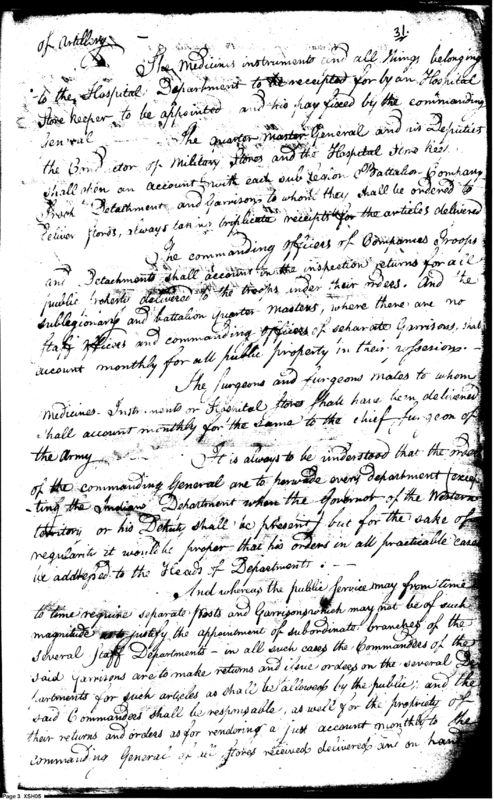 31.
of Artillery —
The Medicines instruments and all things belonging
to the Hospital Department to be receipted for by an Hospital
Store keeper to be appointed and his pay fixed by the commanding
General — The quarter Master General and his Deputies
the Conductor of Military Stores and the Hospital Store keeper
shall open an account with each sub legion Battalion Company
Troop Detachment and Garrisons to whom they shall be ordered to
deliver stores, always taking triplicate receipts for the articles delivered
The commanding officers of Companies Troops
and Detachments shall account in the inspection returns for all
public property delivered to the troops under their orders. And the
sublegionary and battalion quarter Masters, where there are no
staff officers and commanding officers of separate Garrisons, shall
account monthly for all public property in their possession. —
The surgeons and surgeons mates to whom
medicines Instruments or Hospital stores shall have been delivered
shall account monthly for the same to the chief surgeon of
the Army It is always to be understood that the orders
of the commanding General are to pervade every department (excep
-ting the Indian Department when the Governor of the Western
territory or his Deputy shall be present) but for the sake of
regularity it would be proper that his orders in all practicable cases
be addressed to the Heads of Departments. —
And whereas the public service may from time
to time require separate Posts and Garrisons which may not be of such
magnitude as to justify the appointment of subordinate branches of the
several staff Departments — in all such cases the Commanders of the
said Garrisons are to make returns and issue orders on the several De
partments for such articles as shall be allowed by the public; and the
said Commanders shall be responsable, as well for the propriety of
their returns and orders as for rendering a just account monthly to the
commanding General of all stores received delivered and on hand
Page 3 XSH05